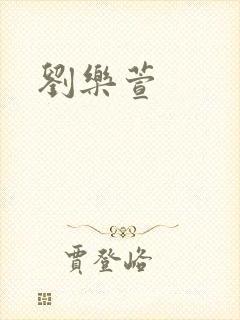 劉樂萱
賈登峪